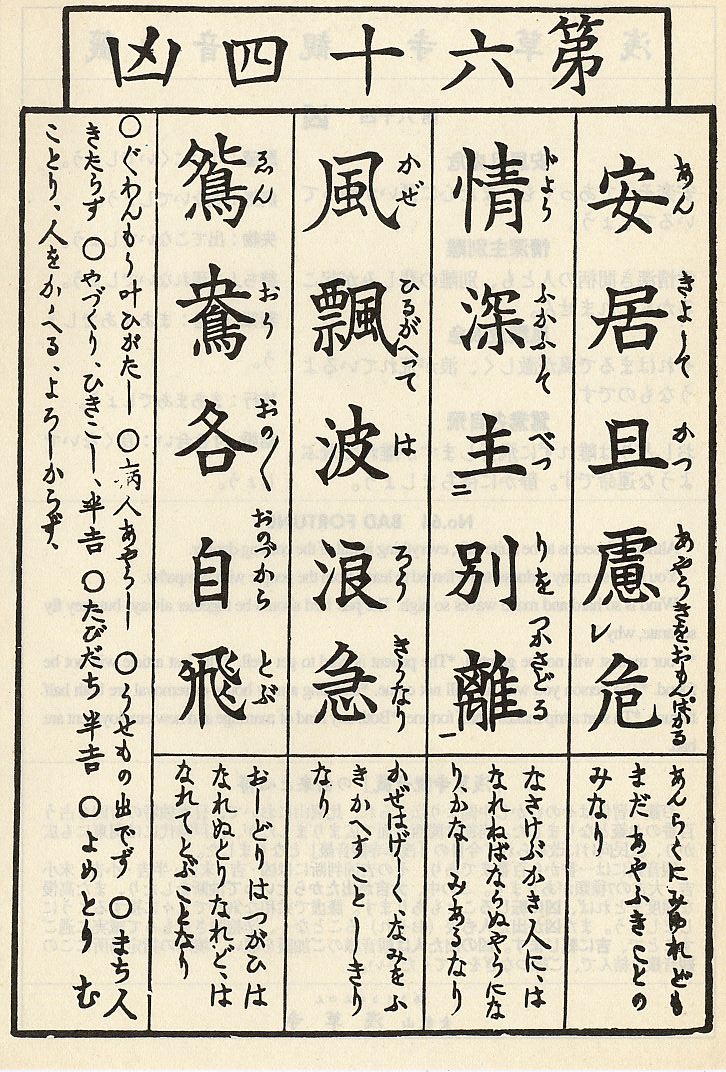 第六十四凶
安居且慮レ危
あん きよして かつ あやうきをおもんぱかる
あんらくにみゆれども
まだあやふきことの
みなり
情深主二別離一
じよう ふかふして べつ りを つかさどる
なさけぶかき人に、は
なれねばならぬやうにな
りかなしみあるなり
風飄波浪急
かぜ ひるがへって は ろう きうなり
かぜはげしくなみをふ
きかへすことしきり
なり
鴛鴦各自飛
ゑん おう おの〱 おのづから とぶ
おしどりはつがひは
なれぬとりなれど、は
なれてとぶことなり
〇ぐわんもう叶ひがたし 〇病人あやうし 〇うせもの出でず 〇まち人
きたらず 〇やづくり、ひきこし、半吉 〇たびだち半吉 〇よめとり、む
ことり、人をかゝへる、よろしからず、